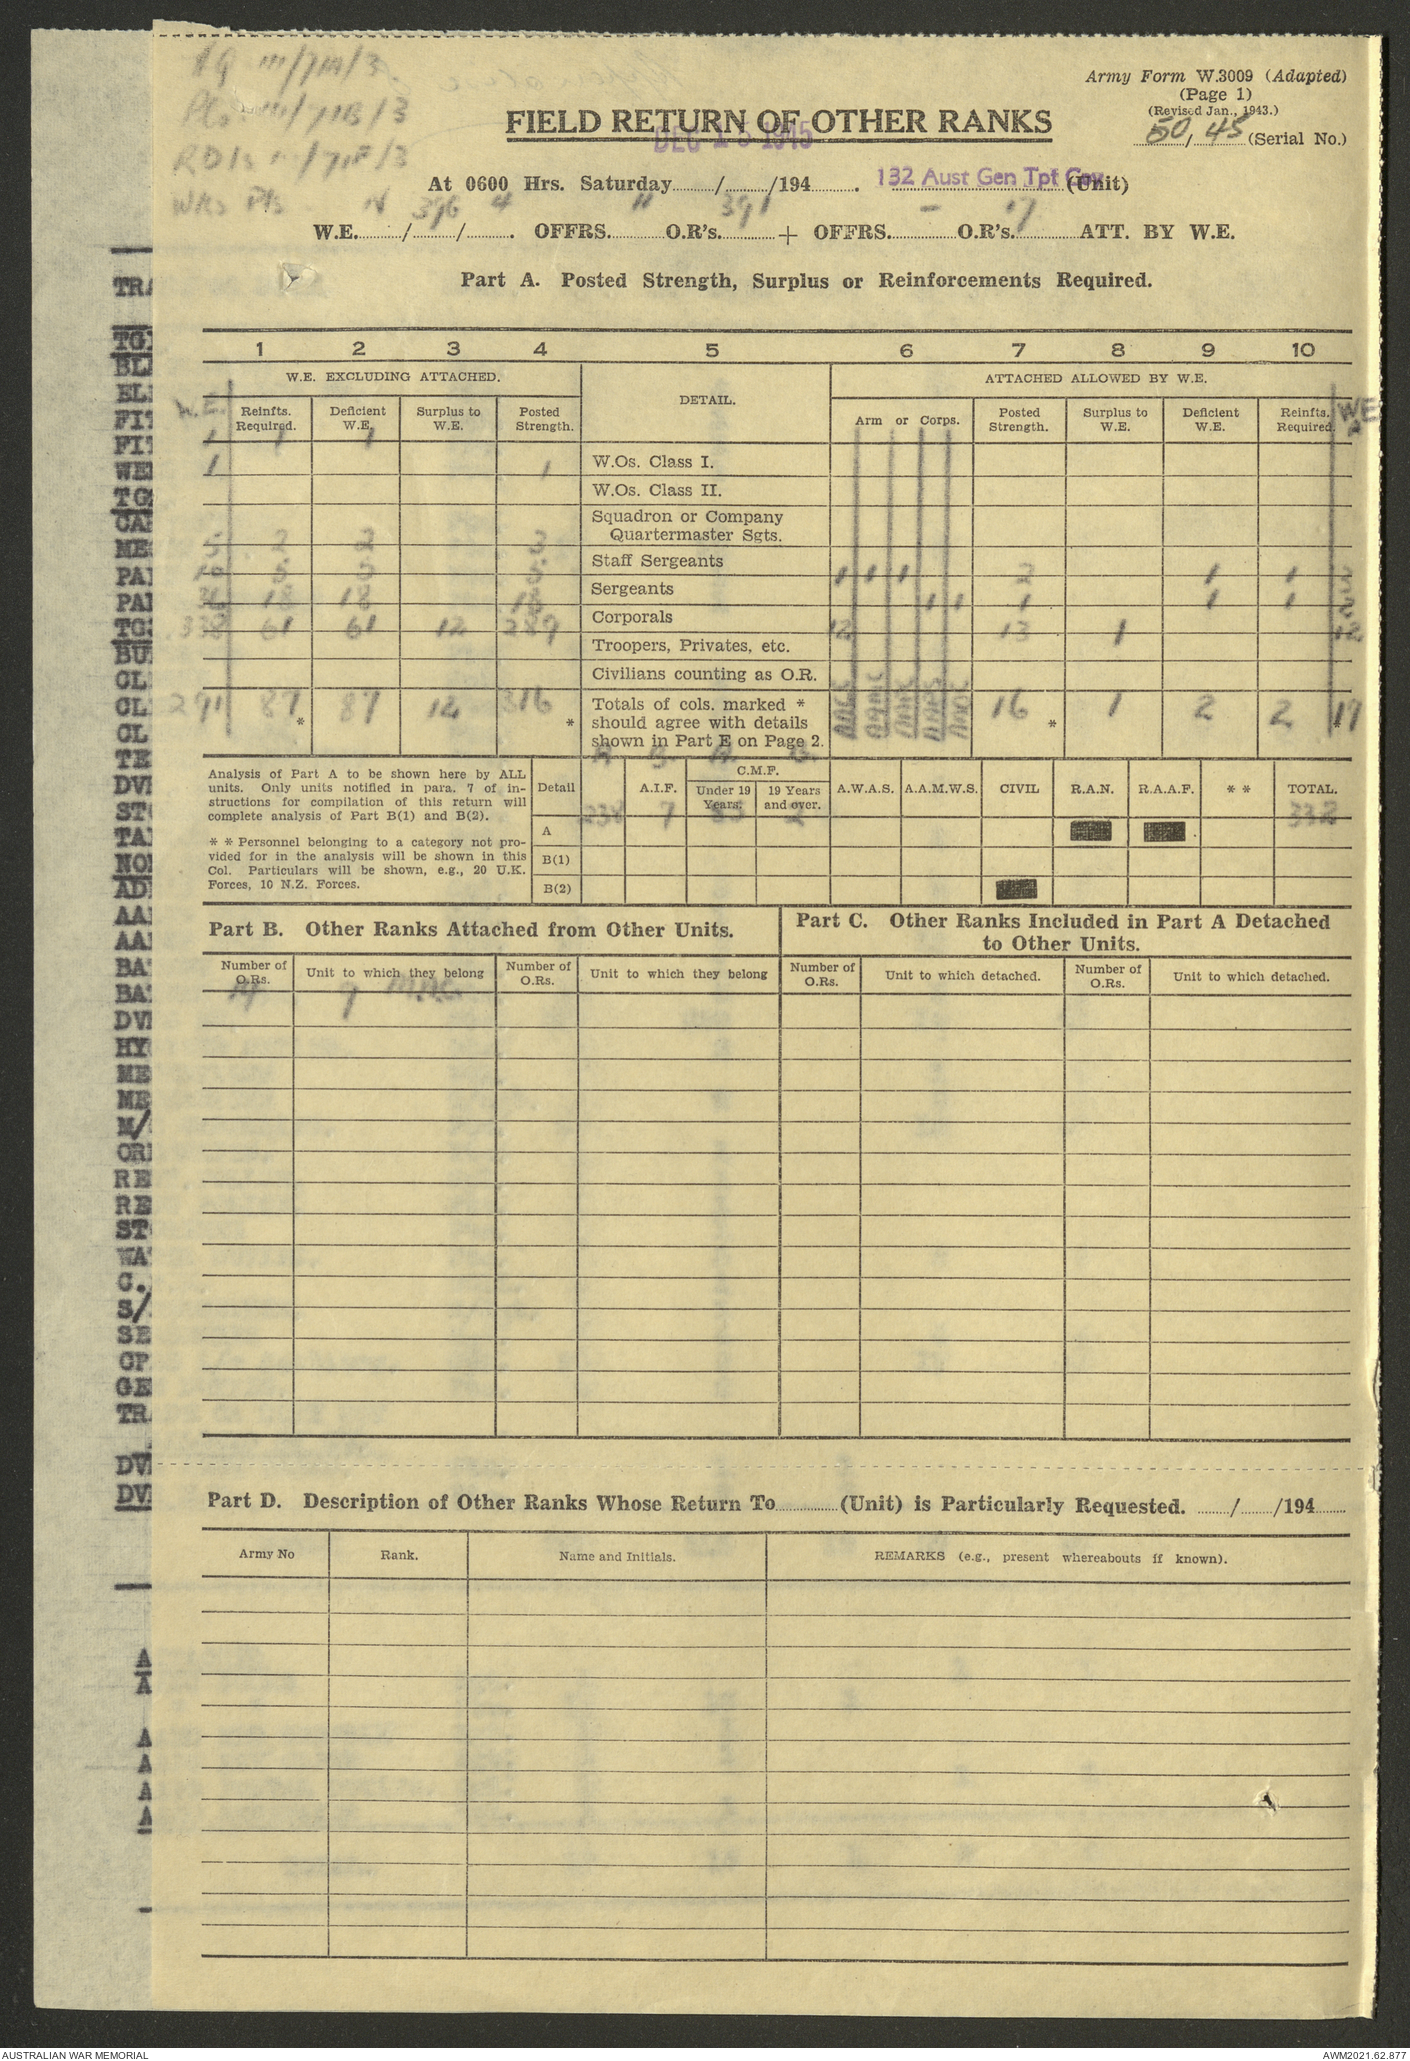 Army Form W.3009 (Adapted)
(Page 1)
(Revised Jan., 1943.)
50, 45 (Serial No.)
FIELD RETURN OF OTHER RANKS
DEC 1945
At 0600 Hrs. Saturday......../......../194........ . 132 Aust Gen Tpt Coy (Unit)
W.E. / 396 / 4 . OFFRS. 11 O.R's. 391 + OFFRS. - O.R's. 17 ATT. BY W.E.
Part A. Posted Strength, Surplus or Reinforcements Required.
1 2 3 4 5 6 7 8 9 10
W.E. EXCLUDING ATTACHED. DETAIL. ATTACHED ALLOWED BY W.E.
W.E. Reinfts. Required. Deficient W.E. Surplus to W.E. Posted Strength. Arm or Corps. Posted Strength. Surplus to W.E. Deficient W.E. Reinfts. Required. WE
1 1 1 W.Os. Class I.
1 1 W.Os. Class II.
Squadron or Company
Quartermaster Sgts.
5 2 2 3 Staff Sergeants
5 5 5 Sergeants 1 1 1 2 1 1 3
36 18 18 18 Corporals 1 1 1 1 1 2
338 61 61 12 289 Troopers, Privates, etc. 12 13 1 12
Civilians counting as O.R.
291 87 * 87 12 316 * Totals of cols. marked * 16 * 1 2 2 * 17
should agree with details
shown in Part E on Page 2.
Analysis of Part A to be shown here by ALL
units. Only units notified in para. 7 of in-
structions for compilation of this return will
complete analysis of Part B(1) and B(2).
* * Personnel belonging to a category not pro-
vided for in the analysis will be shown in this
Col. Particulars will be shown, e.g., 20 U.K.
Forces, 10 N.Z. Forces.
Detail A.I.F. C.M.F. Under 19 Years. 19 Years and over. A.W.A.S. A.A.M.W.S. CIVIL R.A.N. R.A.A.F. * * TOTAL.
A 238 7 85 2 332
B(1)
B(2)
Part B. Other Ranks Attached from Other Units.
Part C. Other Ranks Included in Part A Detached
to Other Units.
Number of O.Rs. Unit to which they belong Number of O.Rs. Unit to which they belong Number of O.Rs. Unit to which detached. Number of O.Rs. Unit to which detached.
Part D. Description of Other Ranks Whose Return To............(Unit) is Particularly Requested. ....../....../194......
Army No Rank. Name and Initials. REMARKS (e.g., present whereabouts if known).
TRA
TG
BL
EL
FIT
FIT
WE
TG
CA
ME
PAI
PAI
TG
BU
CL
CL
CL
TE
DV
ST
TA
NO
AD
AA
AA
BA
BA
DV
HY
ME
ME
M/
OR
RE
RE
ST
WA
C.
S/
SE
CP
GE
TR
DV
DV
A
A
A
A
A
A
AUSTRALIAN WAR MEMORIAL
AWM2021.62.877